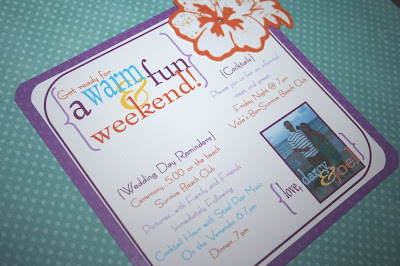 Get ready for
{a warm & fun
weekend!}
{Cocktails}
Please join us for an informal
meet and greet
Friday Night @ 7 pm
Vida's Bar-Sunrise Beach Club
{Wedding Day Reminders}
Ceremony-5:00 on the beach
Sunrise Beach Club
Pictures with Family and Friends
Immediately Following
Cocktail Hour with Steel Pan Music
On the Veranda-6-7 pm
Dinner-7pm
{love, darcy
& joel}